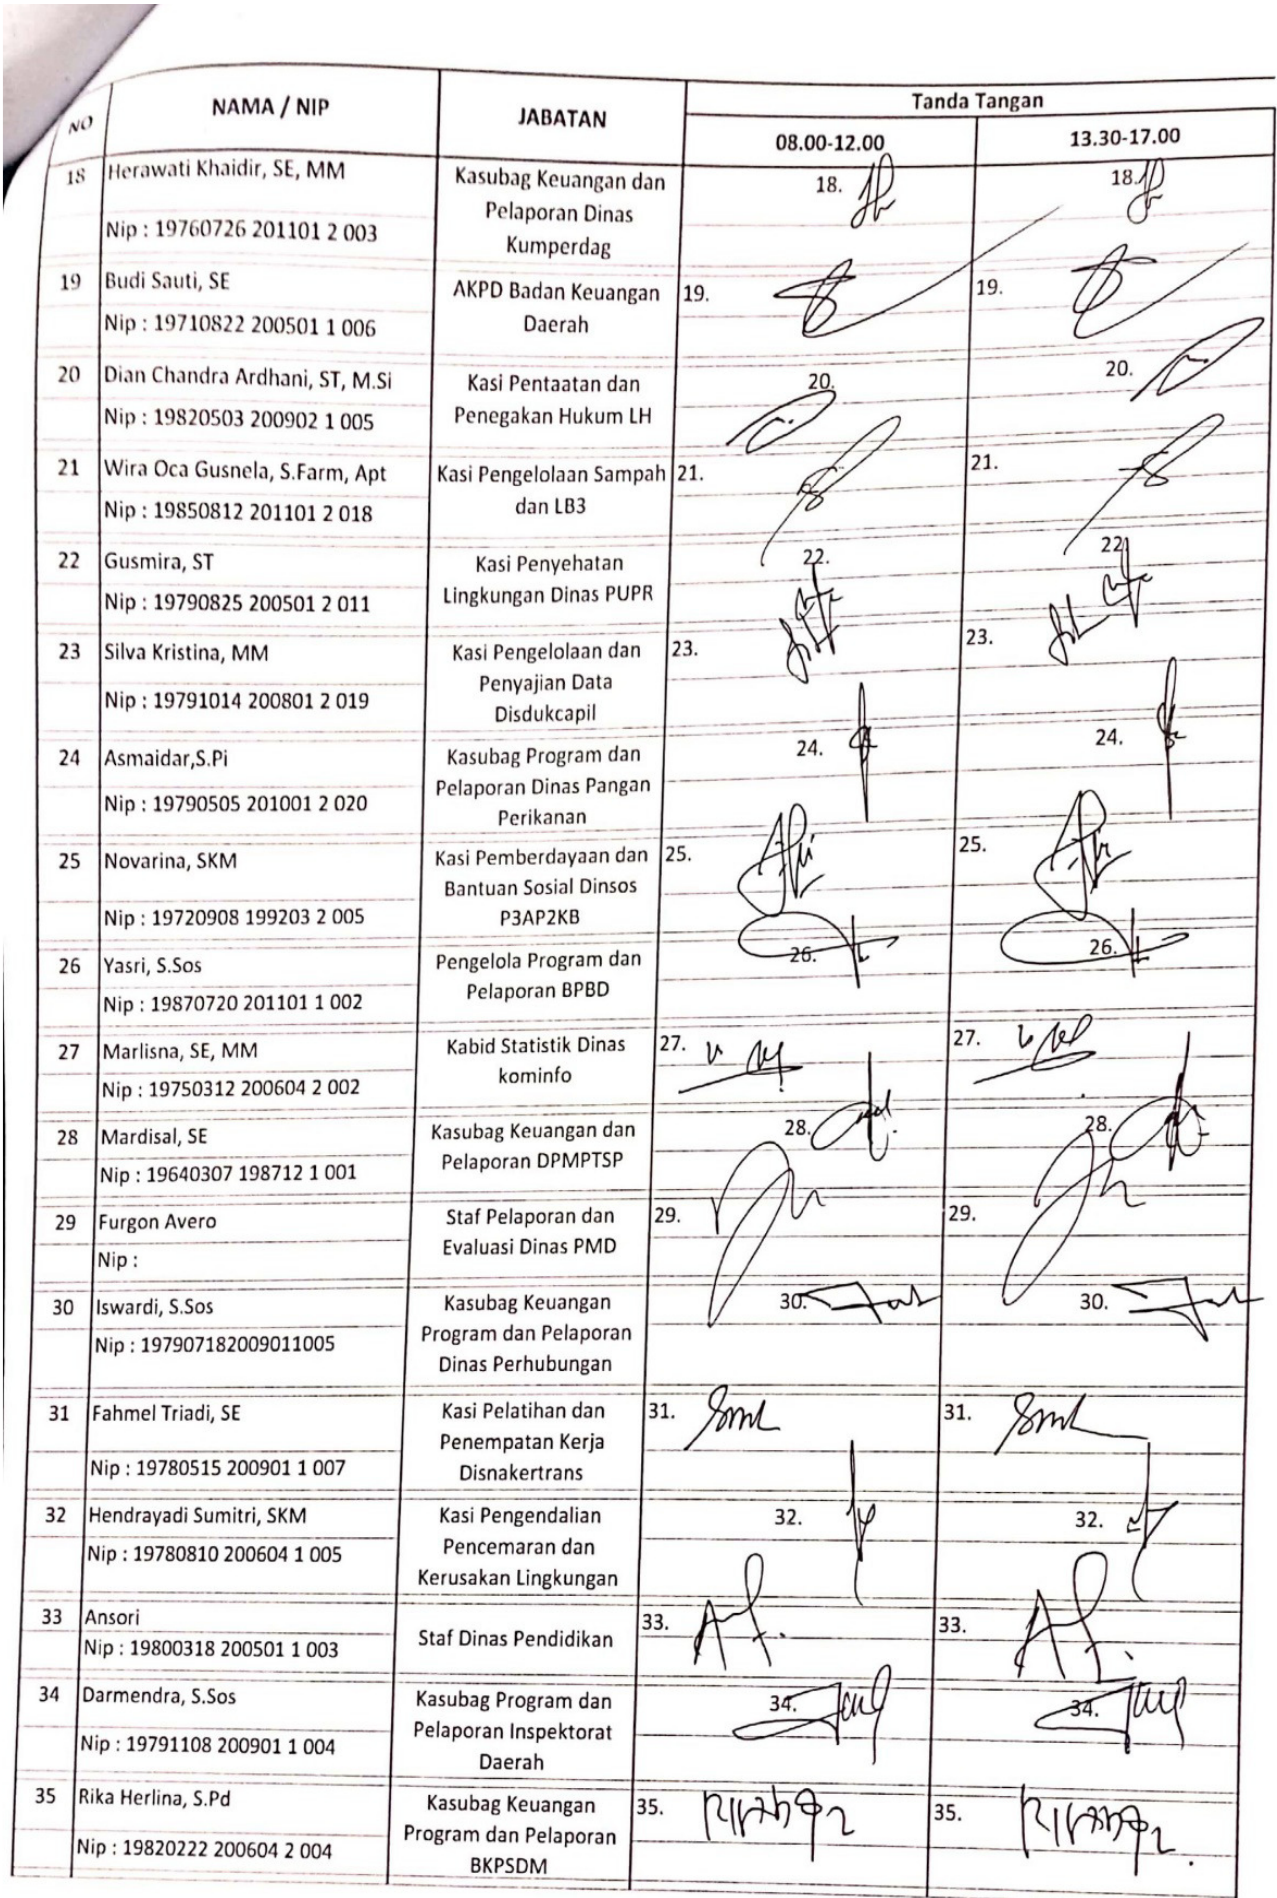 NO
NAMA / NIP
JABATAN
Tanda Tangan
08.00-12.00
13.30-17.00
18
Herawati Khaidir, SE, MM
Nip : 19760726 201101 2 003
Kasubag Keuangan dan
Pelaporan Dinas
Kumperdag
18.
18.
19
Budi Sauti, SE
Nip : 19710822 200501 1 006
AKPD Badan Keuangan
Daerah
19.
19.
20
Dian Chandra Ardhani, ST, M.Si
Nip : 19820503 200902 1 005
Kasi Pentaatan dan
Penegakan Hukum LH
20.
20.
21
Wira Oca Gusnela, S.Farm, Apt
Nip : 19850812 201101 2 018
Kasi Pengelolaan Sampah
dan LB3
21.
21.
22
Gusmira, ST
Nip : 19790825 200501 2 011
Kasi Penyehatan
Lingkungan Dinas PUPR
22.
22.
23
Silva Kristina, MM
Nip : 19791014 200801 2 019
Kasi Pengelolaan dan
Penyajian Data
Disdukcapil
23.
23.
24
Asmaidar,S.Pi
Nip : 19790505 201001 2 020
Kasubag Program dan
Pelaporan Dinas Pangan
Perikanan
24.
24.
25
Novarina, SKM
Nip : 19720908 199203 2 005
Kasi Pemberdayaan dan
Bantuan Sosial Dinsos
P3AP2KB
25.
25.
26
Yasri, S.Sos
Nip : 19870720 201101 1 002
Pengelola Program dan
Pelaporan BPBD
26.
26.
27
Marlisna, SE, MM
Nip : 19750312 200604 2 002
Kabid Statistik Dinas
kominfo
27.
27.
28
Mardisal, SE
Nip : 19640307 198712 1 001
Kasubag Keuangan dan
Pelaporan DPMPTSP
28.
28.
29
Furgon Avero
Nip :
Staf Pelaporan dan
Evaluasi Dinas PMD
29.
29.
30
Iswardi, S.Sos
Nip : 197907182009011005
Kasubag Keuangan
Program dan Pelaporan
Dinas Perhubungan
30.
30.
31
Fahmel Triadi, SE
Nip : 19780515 200901 1 007
Kasi Pelatihan dan
Penempatan Kerja
Disnakertrans
31.
31.
32
Hendrayadi Sumitri, SKM
Nip : 19780810 200604 1 005
Kasi Pengendalian
Pencemaran dan
Kerusakan Lingkungan
32.
32.
33
Ansori
Nip : 19800318 200501 1 003
Staf Dinas Pendidikan
33.
33.
34
Darmendra, S.Sos
Nip : 19791108 200901 1 004
Kasubag Program dan
Pelaporan Inspektorat
Daerah
34.
34.
35
Rika Herlina, S.Pd
Nip : 19820222 200604 2 004
Kasubag Keuangan
Program dan Pelaporan
BKPSDM
35.
35.